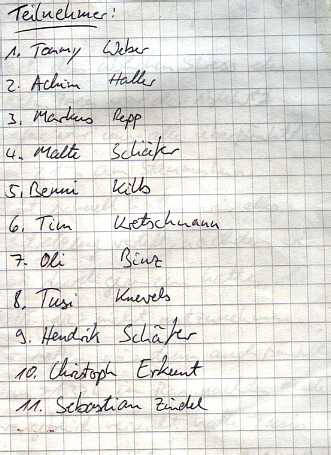 Teilnehmer:
1. Tommy Weber
2. Achim Haller
3. Markus Repp
4. Malte Schäfer
5. Benni Kilb
6. Tim Kretschmann
7. Oli Binz
8. Tusi Knevels
9. Hendrik Schäfer
10. Christoph Erkent
11. Sebastian Zindel